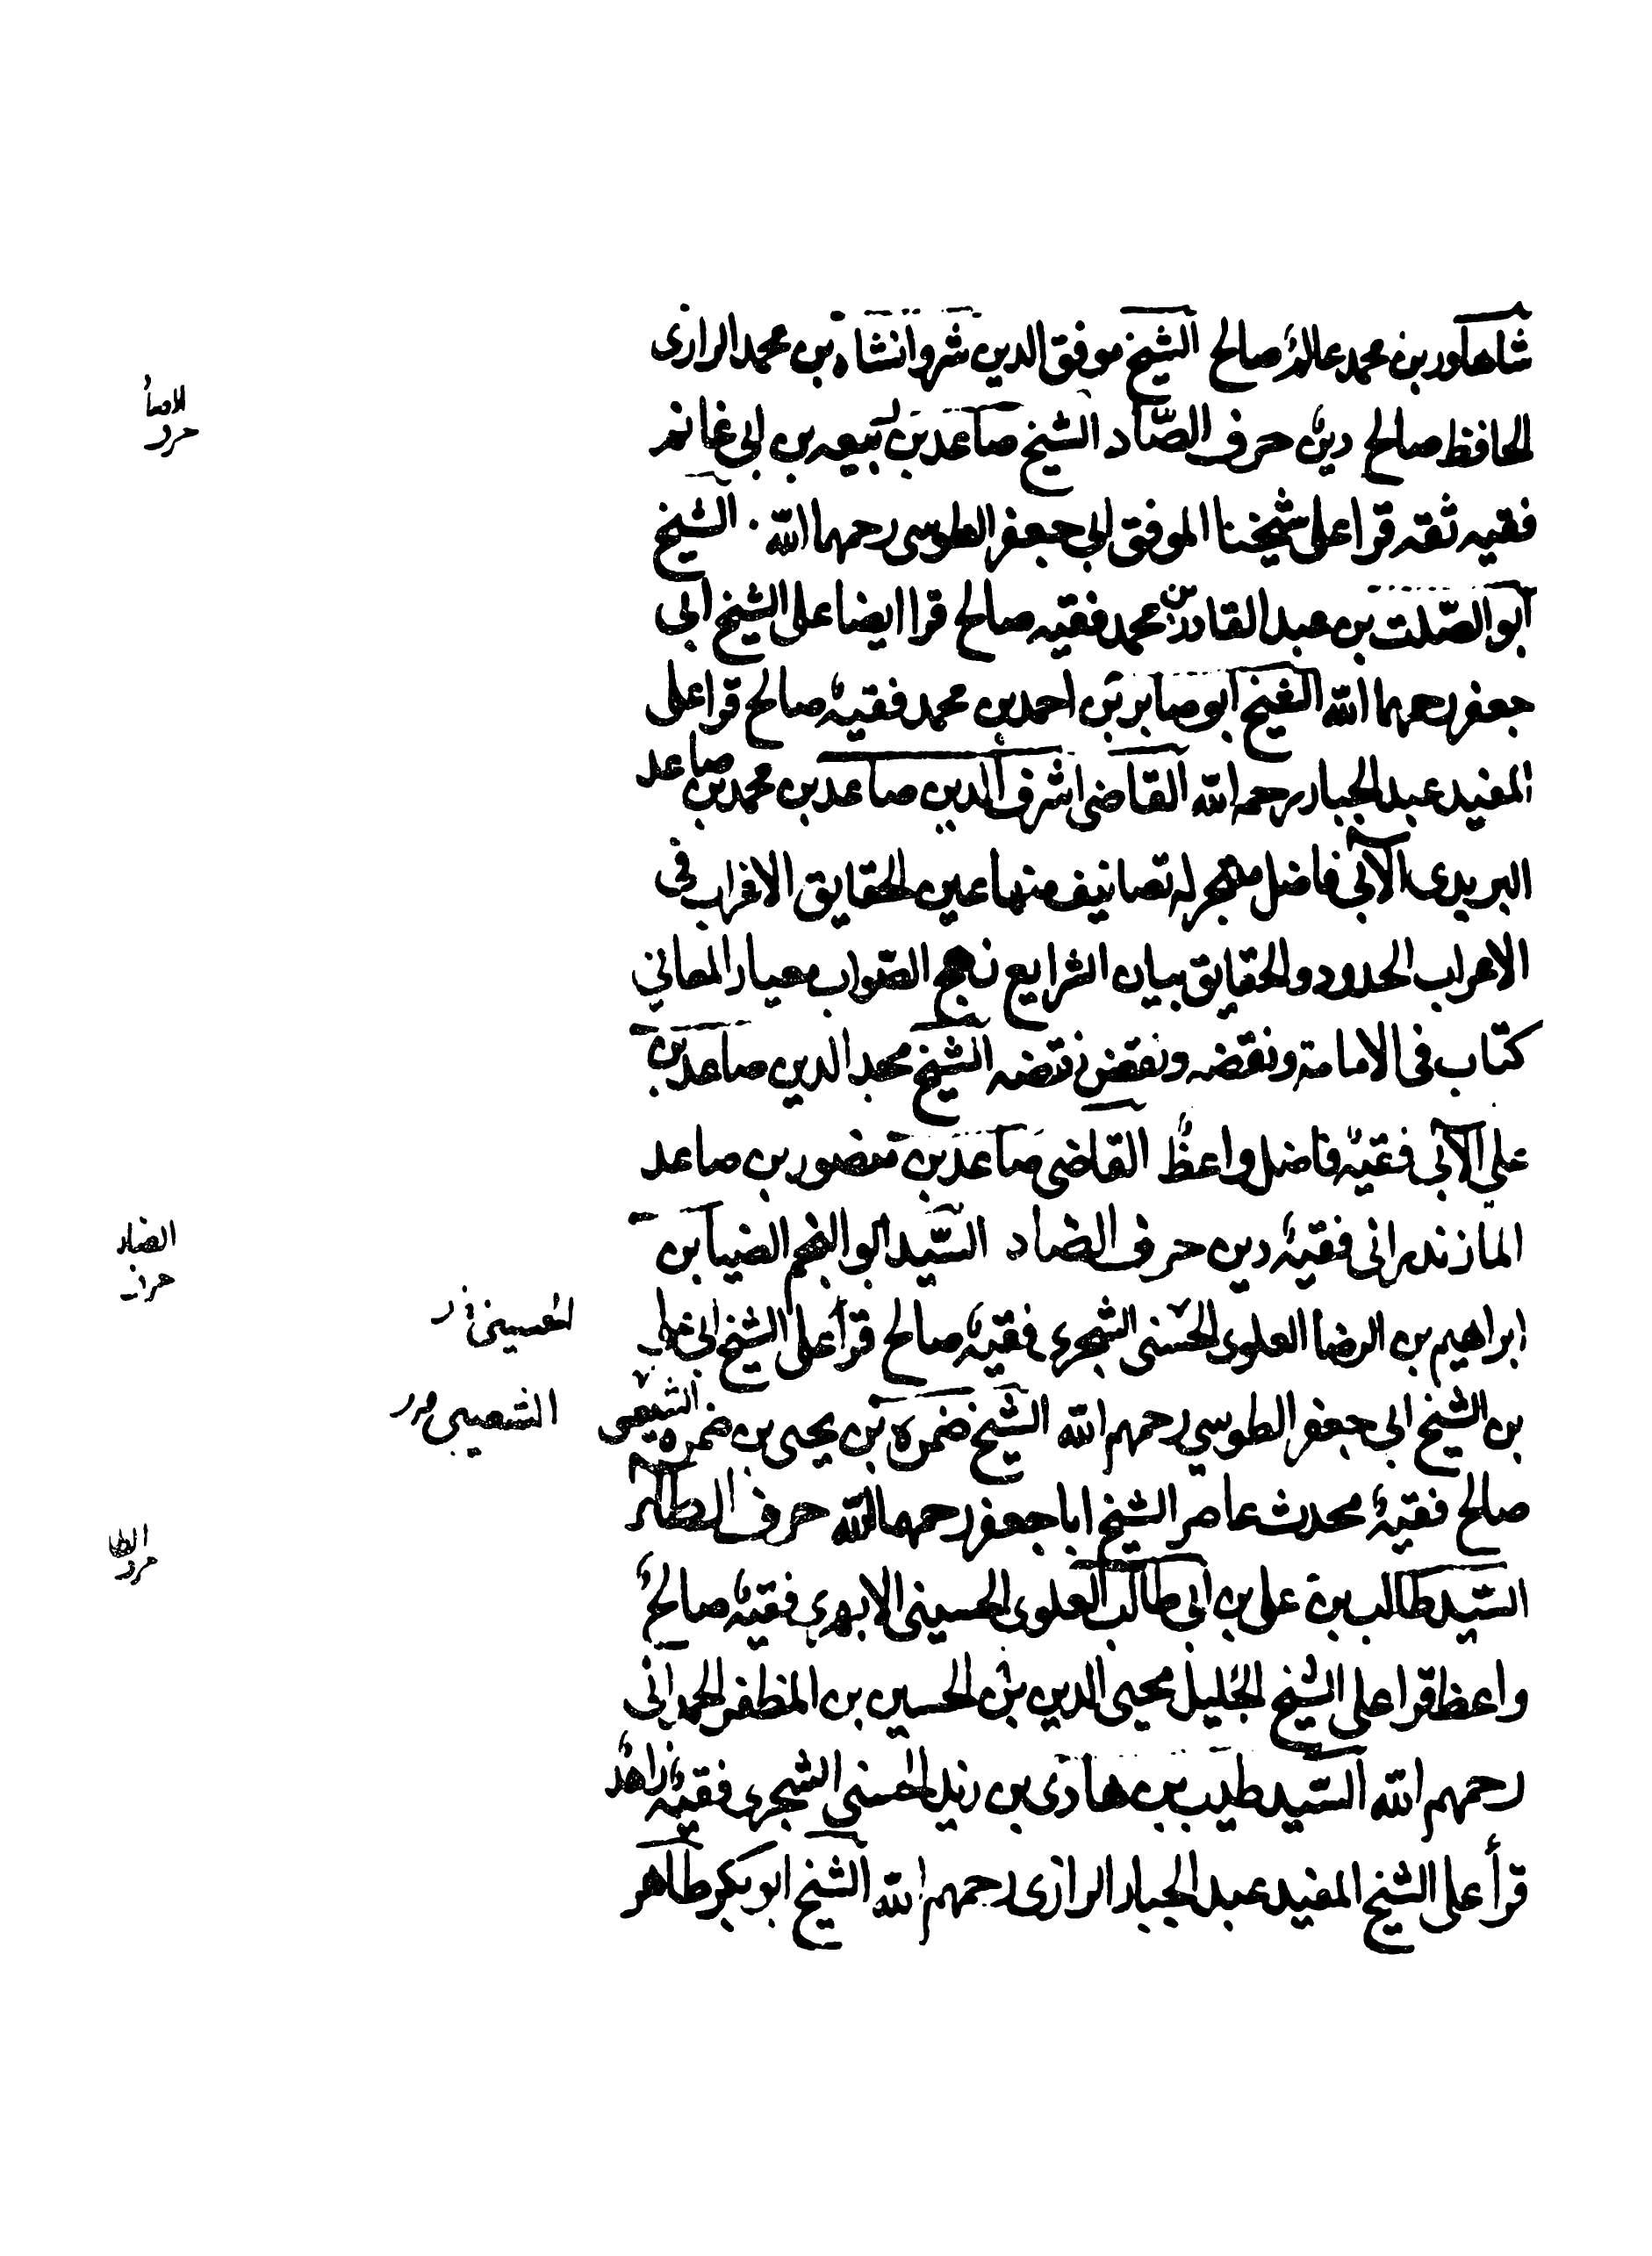 شاهاور بن محمد عالم صالح الشيخ موفق الدين شروانشاه بن محمد الرازى
الحافظ صالح دين حرف الصّاد الشيخ صاعد بن ربيعه بن ابى غانم
فقيه ثقه قرا على شيخنا الموفق ابى جعفر الطوسى رحمهما اللّه . الشيخ
ابو الصّلت بن عبد القادر بن محمد فقيه صالح قرا ايضا على الشيخ ابى
جعفر رحمهما اللّه الشيخ ابو صابر بن احمد بن محمد فقيه صالح قرا على
المفيد عبد الجبار رحمه اللّه القاضى اشرف الدين صاعد بن محمد بن صاعد
البريدى الآبى فاضل متبحر له تصانيف منها عين الحقايق الاغراب فى
الاعراب الحدود والحقايق بيان الشرايع نهج الصّواب معيار المعانى
كتاب فى الامامة ونقضه ونقض نقضه الشيخ مجد الدين صاعد بن
على الآبى فقيه فاضل واعظ القاضى صاعد بن منصور بن صاعد
المازندرانى فقيه دين حرف الضاد السّيد ابو النجم الضيا بن
ابراهيم بن الرضا العلوى الحسنى الشجرى فقيه صالح قرأ على الشيخ ابى على
بن الشيخ ابى جعفر الطوسي رحمهم اللّه الشيخ ضمره بن يحيى بن ضمره الشيعى
صالح فقيه محدث عاصر الشيخ ابا جعفر رحمهما اللّه حرف الطاء
السّيد طالب بن على بن ابى طالب العلوى الحسينى الابهرى فقيه صالح
واعظ قرا على الشيخ الجليل محيى الدين بن الحسين بن المظفر الحمدانى
رحمهم اللّه السّيد طيب بن هادى بن زيد الحسنى الشجرى فقيه زاهد
قرأ على الشيخ المفيد عبد الجبار الرازى رحمهم اللّه الشيخ ابو بكر طاهر
الضاد
الحسينى
الشعيبى